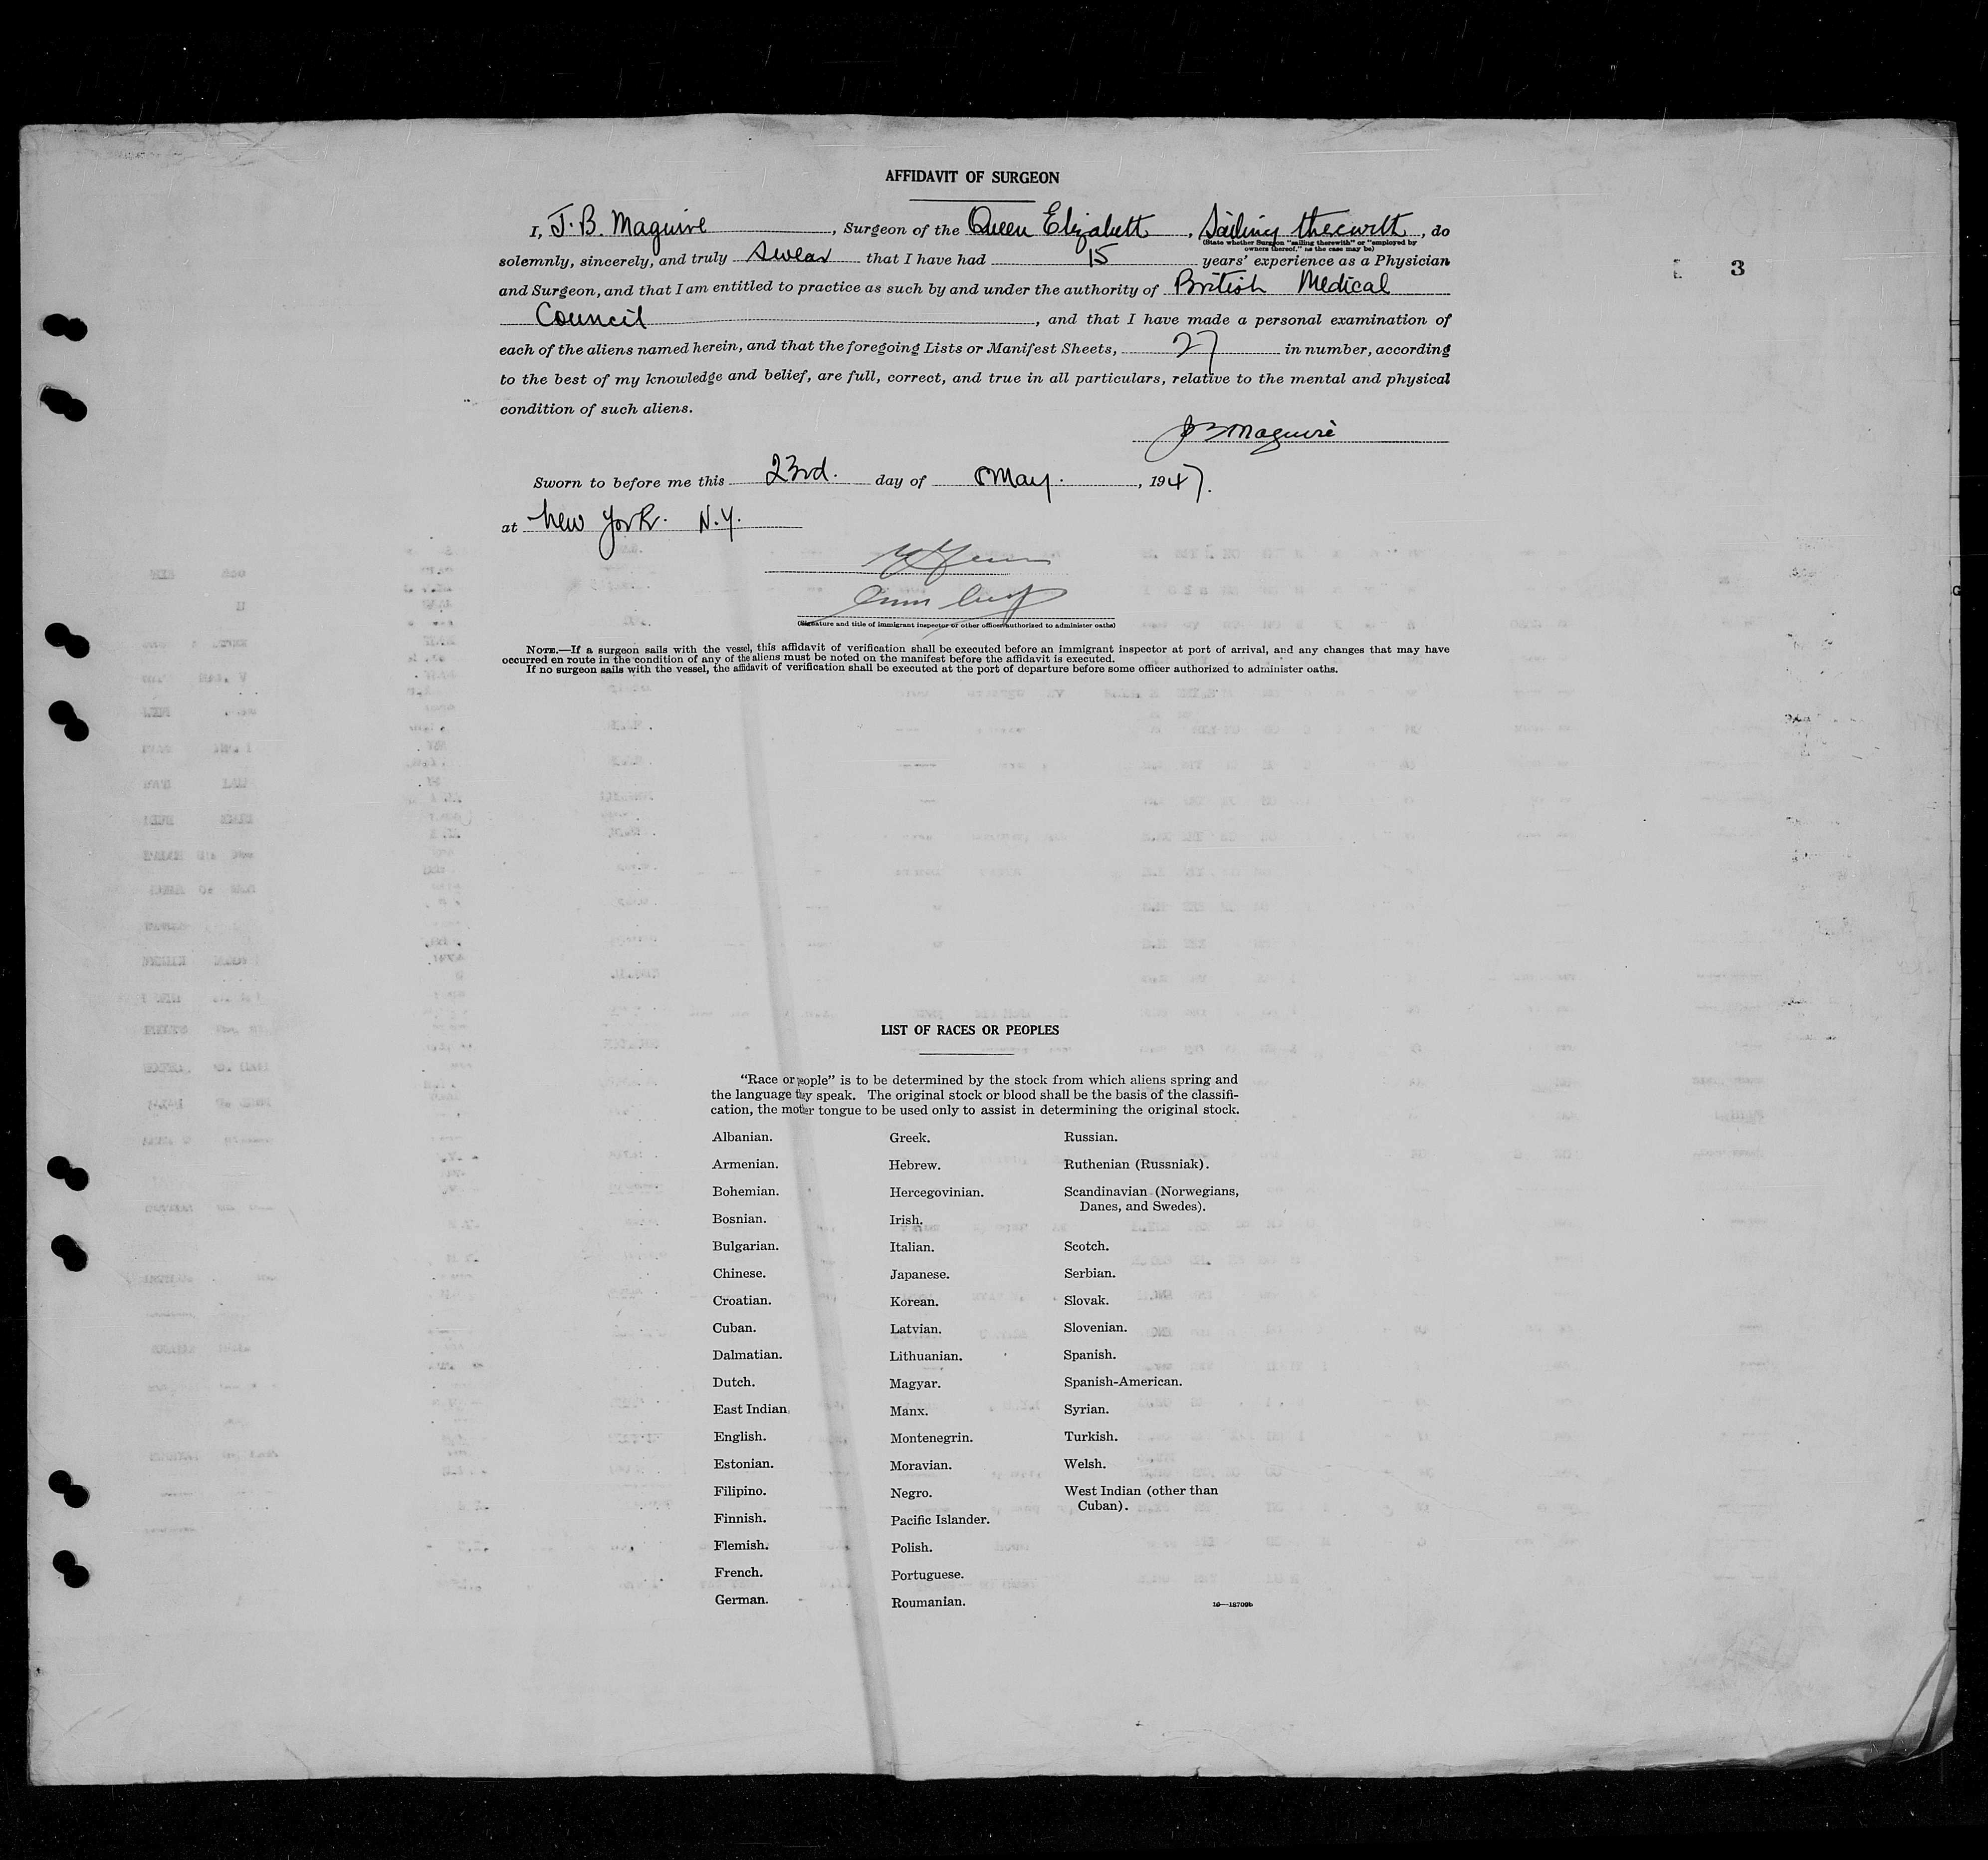 AFFIDAVIT OF SURGEON
I, J. B. Maguire, Surgeon of the Queen Elizabeth, Sailing therewith, do
(State whether Surgeon "sailing therewith" or "employed by
owners thereof," as the case may be)
solemnly, sincerely, and truly swear that I have had 15 years' experience as a Physician
3
and Surgeon, and that I am entitled to practice as such by and under the authority of British Medical
Council, and that I have made a personal examination of
each of the aliens named herein, and that the foregoing Lists or Manifest Sheets, 27 in number, according
to the best of my knowledge and belief, are full, correct, and true in all particulars, relative to the mental and physical
condition of such aliens.
J B Maguire
Sworn to before me this 23rd. day of May., 1947.
at New York. N.Y.
(Signature and title of immigrant inspector or other officer authorized to administer oaths)
NOTE.—If a surgeon sails with the vessel, this affidavit of verification shall be executed before an immigrant inspector at port of arrival, and any changes that may have
occurred en route in the condition of any of the aliens must be noted on the manifest before the affidavit is executed.
If no surgeon sails with the vessel, the affidavit of verification shall be executed at the port of departure before some officer authorized to administer oaths.
LIST OF RACES OR PEOPLES
"Race or people" is to be determined by the stock from which aliens spring and
the language they speak. The original stock or blood shall be the basis of the classifi-
cation, the mother tongue to be used only to assist in determining the original stock.
Albanian.
Armenian.
Bohemian.
Bosnian.
Bulgarian.
Chinese.
Croatian.
Cuban.
Dalmatian.
Dutch.
East Indian.
English.
Estonian.
Filipino.
Finnish.
Flemish.
French.
German.
Greek.
Hebrew.
Hercegovinian.
Irish.
Italian.
Japanese.
Korean.
Latvian.
Lithuanian.
Magyar.
Manx.
Montenegrin.
Moravian.
Negro.
Pacific Islander.
Polish.
Portuguese.
Roumanian.
Russian.
Ruthenian (Russniak).
Scandinavian (Norwegians,
Danes, and Swedes).
Scotch.
Serbian.
Slovak.
Slovenian.
Spanish.
Spanish-American.
Syrian.
Turkish.
Welsh.
West Indian (other than
Cuban).